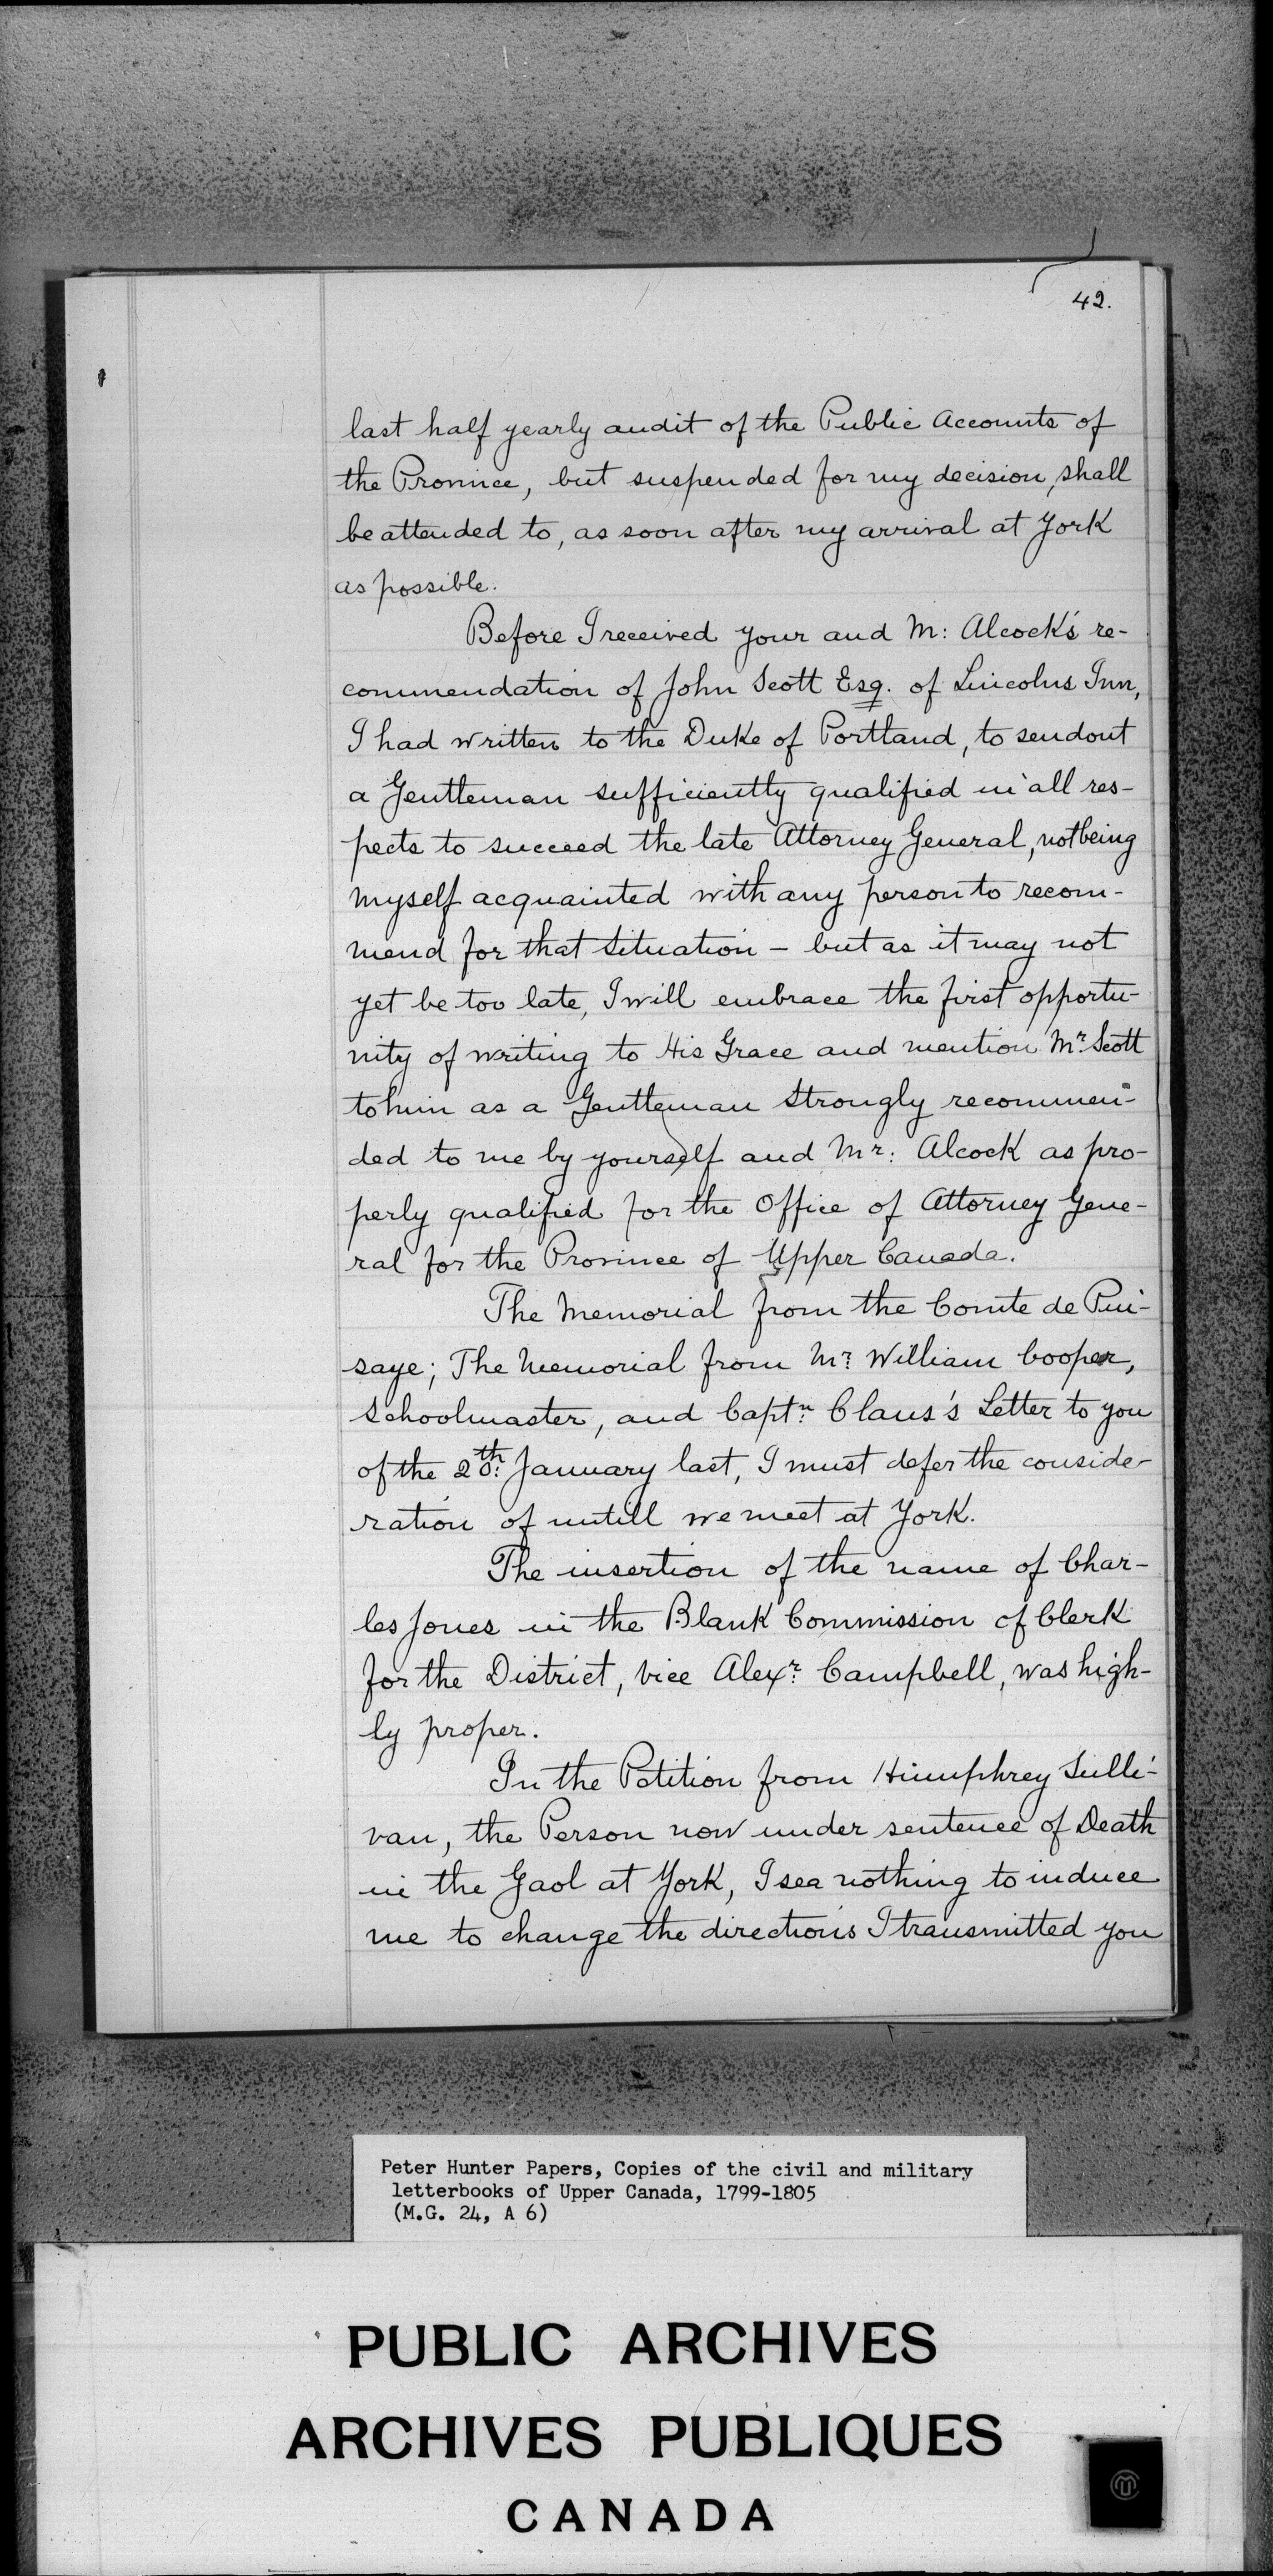 42.
last half yearly audit of the Public Accounts of
the Province, but suspended for my decision, shall
be attended to, as soon after my arrival at York
as possible.
Before I received your and M: Alcock's re-
commendation of John Scott Esq. of Lincolns Inn,
I had written to the Duke of Portland, to send out
a Gentleman sufficiently qualified in all res-
pects to succeed the late Attorney General, not being
myself acquainted with any person to recom-
mend for that situation - but as it may not
yet be too late, I will embrace the first opportu-
nity of writing to His Grace and mention Mr. Scott
to him as a Gentleman strongly recommen-
ded to me by yourself and Mr: Alcock as pro-
perly qualified for the Office of Attorney Gene-
ral for the Province of Upper Canada.
The Memorial from the Comte de Pui-
saye; The Memorial from Mr. William Cooper,
Schoolmaster, and Captn. Claus's Letter to you
of the 20th: January last, I must defer the conside-
ration of untill we meet at York.
The insertion of the name of Char-
les Jones in the Blank Commission of Clerk
for the District, vice Alexr. Campbell, was high-
ly proper.
In the Petition from Humphrey Sulli-
van, the Person now under sentence of Death
in the Gaol at York, I see nothing to induce
me to change the directions I transmitted you
Peter Hunter Papers, Copies of the civil and military
letterbooks of Upper Canada, 1799-1805
(M.G. 24, A 6)
PUBLIC ARCHIVES
ARCHIVES PUBLIQUES
CANADA